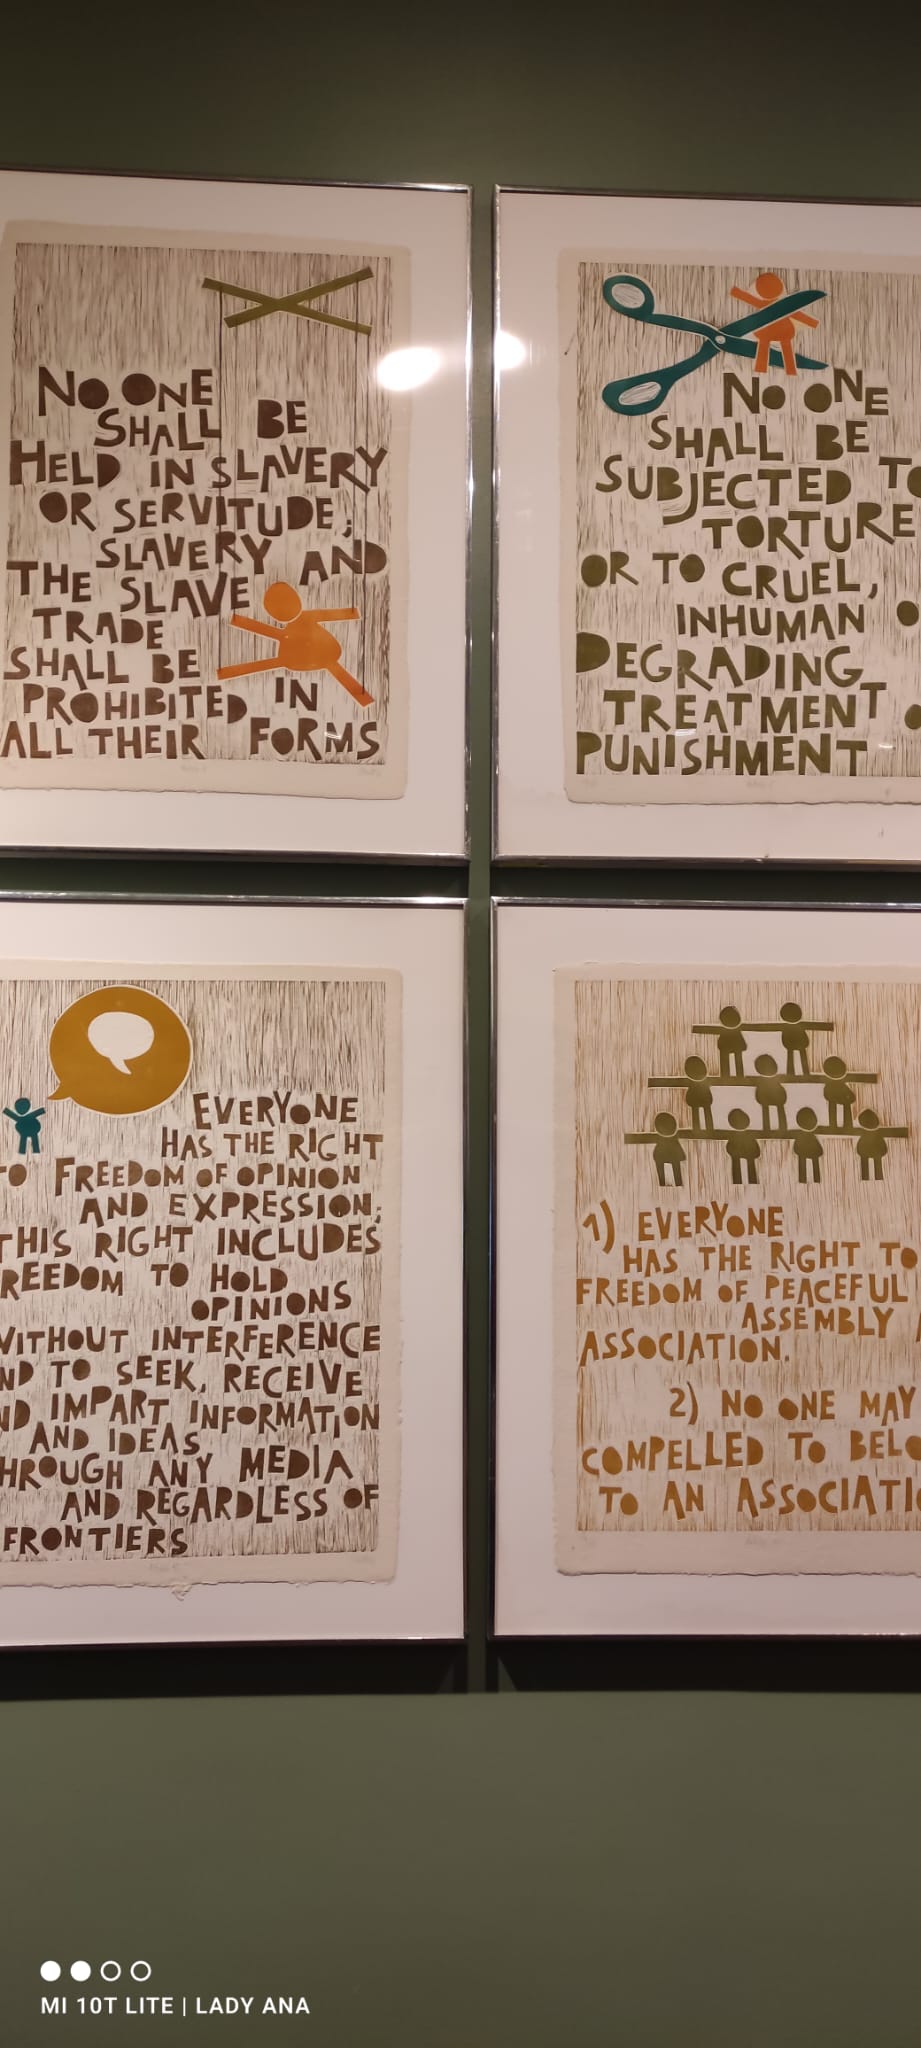 NO ONE
SHALL BE
HELD IN SLAVERY
OR SERVITUDE;
SLAVERY AND
THE SLAVE
TRADE
SHALL BE
PROHIBITED IN
ALL THEIR FORMS
NO ONE
SHALL BE
SUBJECTED TO
TORTURE
OR TO CRUEL,
INHUMAN
DEGRADING
TREATMENT
PUNISHMENT
EVERYONE
HAS THE RIGHT
TO FREEDOM OF OPINION
AND EXPRESSION;
THIS RIGHT INCLUDES
REEDOM TO HOLD
OPINIONS
WITHOUT INTERFERENCE
ND TO SEEK, RECEIVE
ND IMPART INFORMATION
AND IDEAS
HROUGH ANY MEDIA
AND REGARDLESS OF
FRONTIERS
1) EVERYONE
HAS THE RIGHT TO
FREEDOM OF PEACEFUL
ASSEMBLY
ASSOCIATION.
2) NO ONE MAY
COMPELLED TO BELO
TO AN ASSOCIATI
MI 10T LITE | LADY ANA